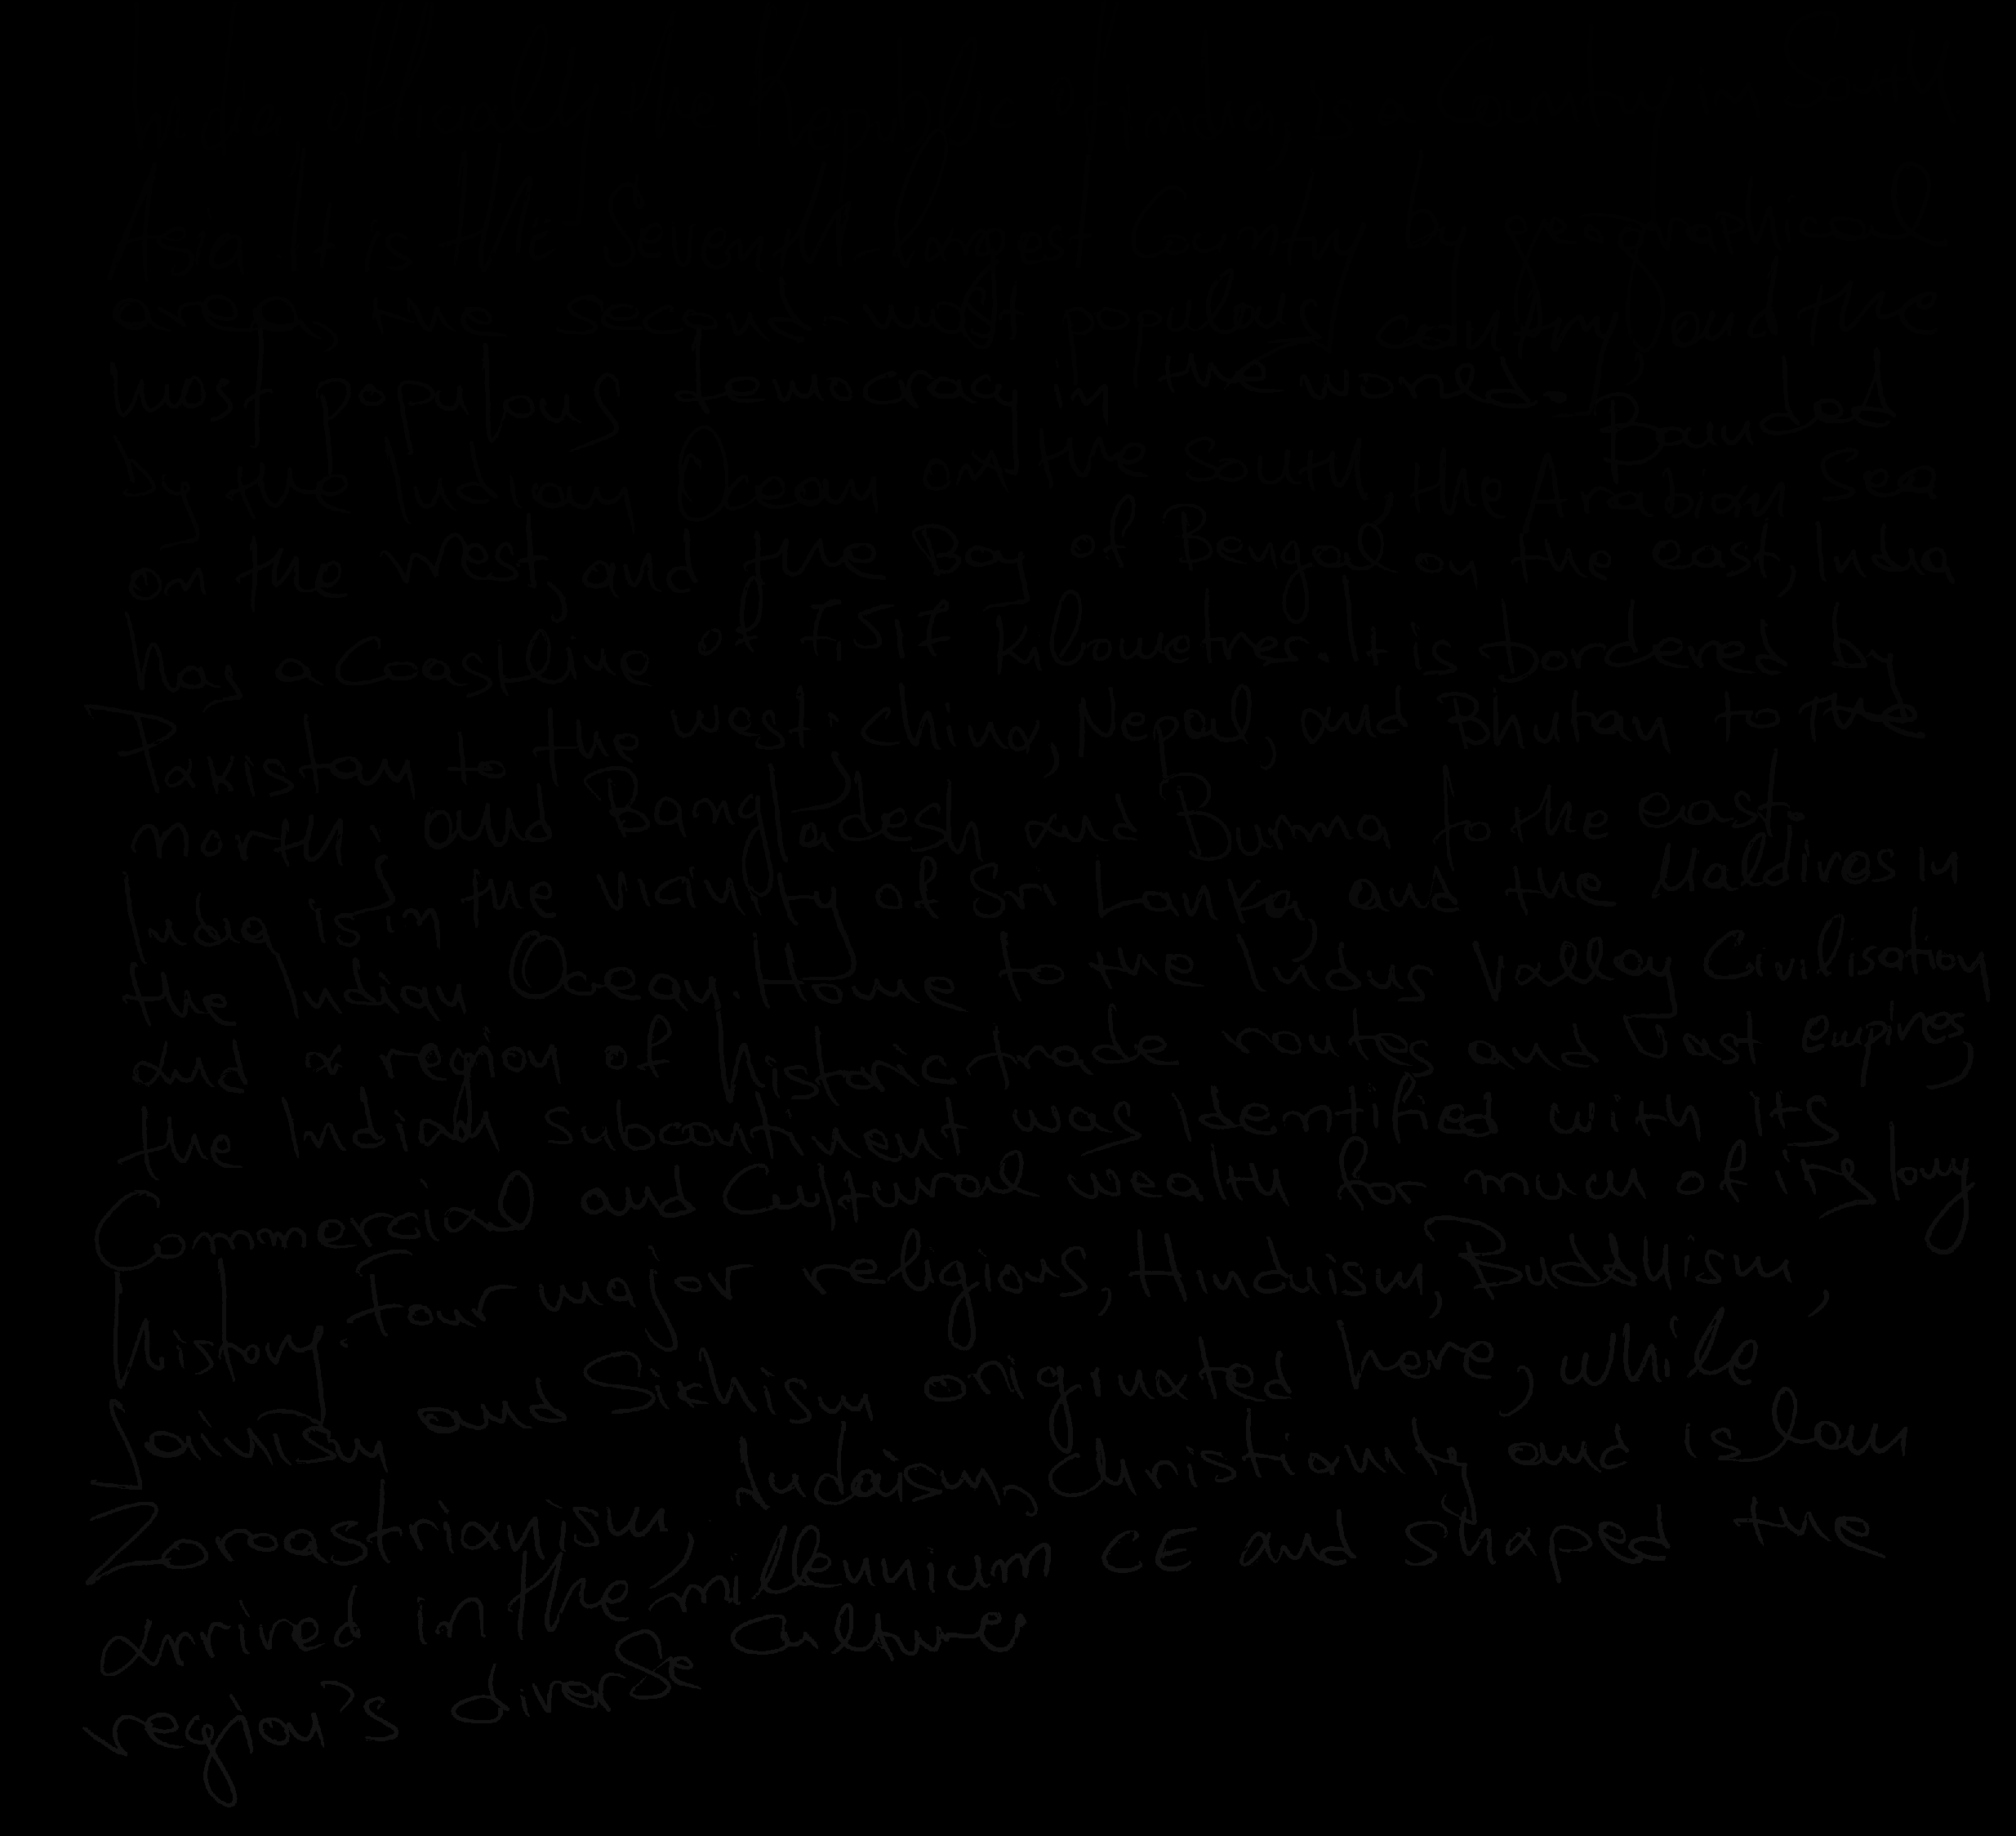 India, officially the Republic of India, is a Country in South
Asia It is the Seventh-largest Country by geographical
area, the second-most populous country, and the
most populous democracy in the world. Bounded
by the Indian Ocean on the South, the Arabian Sea
on the west, and the Bay of Bengal on the east, India
has a Coastline of 7,517 kilometres. It is bordered by
Pakistan to the west: China, Nepal, and Bhutan to the
north; and Bangladesh and Burma to the east.
India is in the vicinity of Sri Lanka, and the Maldives in
the Indian Ocean. Home to the Indus Valley Civilisation
and a region of historic trade routes and vast empires,
the Indian subcontinent was identified with its
Commercial and Cultural wealth for much of its long
history. Four major religions, Hinduism, Buddhism,
Jainism and Sikhism originated here, while
Zoroastrianism, Judaism, Christianity and islam
arrived in the millennium CE and shaped the
region's diverse culture